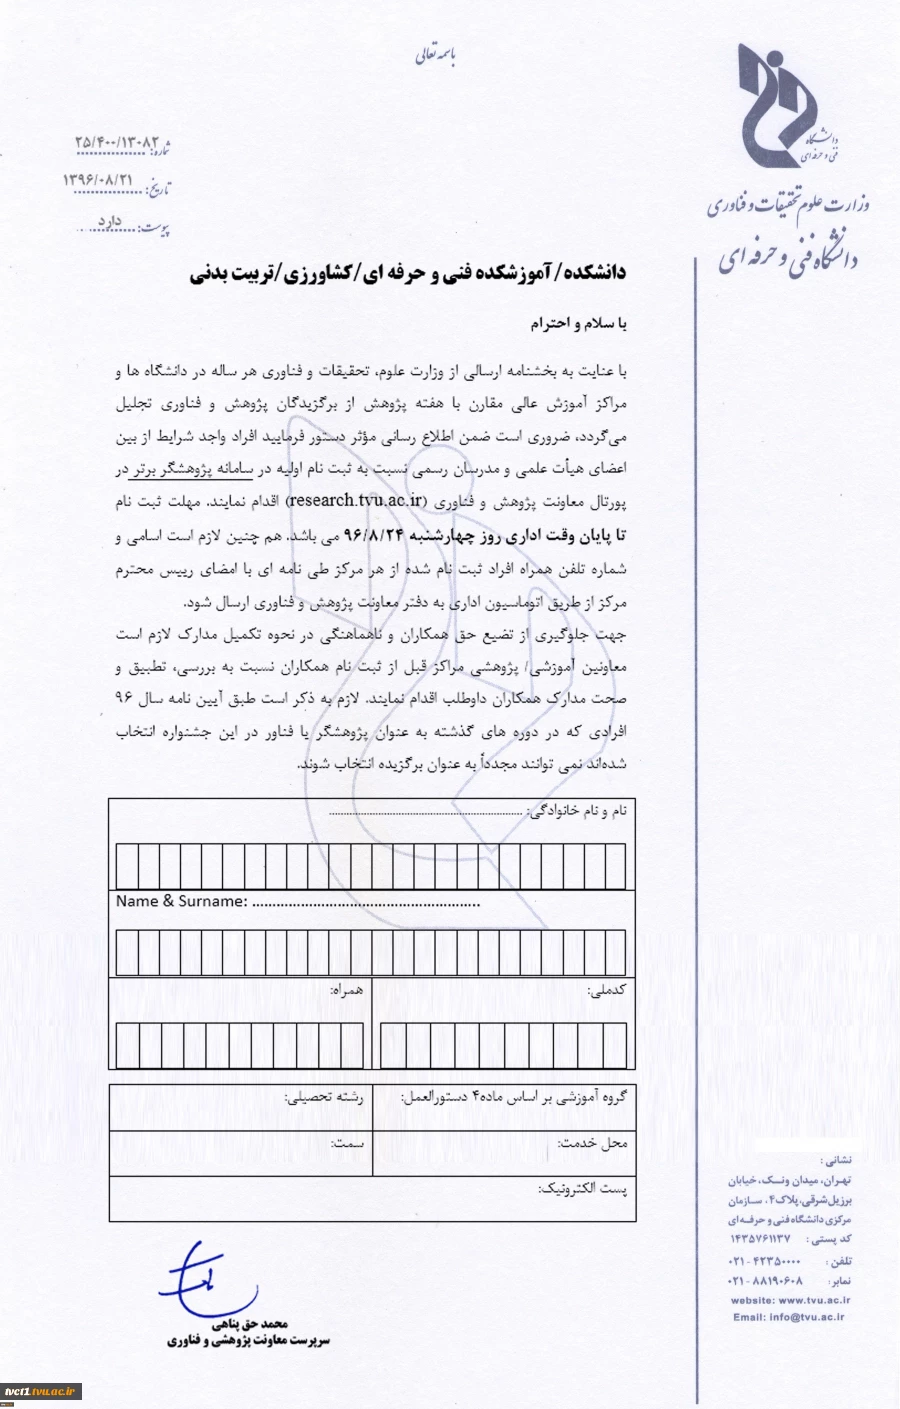 باسمه تعالی
دانشگاه
فنی و حرفه ای
وزارت علوم تحقیقات و فناوری
دانشگاه فنی و حرفه ای
شماره: ۲۵/۴۰۰/۱۳۰۸۲
تاریخ: ۱۳۹۶/۰۸/۲۱
پیوست: دارد
دانشکده/ آموزشکده فنی و حرفه ای/ کشاورزی/ تربیت بدنی
با سلام و احترام
با عنایت به بخشنامه ارسالی از وزارت علوم، تحقیقات و فناوری هر ساله در دانشگاه ها و
مراکز آموزش عالی مقارن با هفته پژوهش از برگزیدگان پژوهش و فناوری تجلیل
می‌گردد، ضروری است ضمن اطلاع رسانی مؤثر دستور فرمایید افراد واجد شرایط از بین
اعضای هیأت علمی و مدرسان رسمی نسبت به ثبت نام اولیه در سامانه پژوهشگر برتر در
پورتال معاونت پژوهش و فناوری (research.tvu.ac.ir) اقدام نمایند. مهلت ثبت نام
تا پایان وقت اداری روز چهارشنبه ۹۶/۸/۲۴ می باشد. هم چنین لازم است اسامی و
شماره تلفن همراه افراد ثبت نام شده از هر مرکز طی نامه ای با امضای رییس محترم
مرکز از طریق اتوماسیون اداری به دفتر معاونت پژوهش و فناوری ارسال شود.
جهت جلوگیری از تضیع حق همکاران و ناهماهنگی در نحوه تکمیل مدارک لازم است
معاونین آموزشی/ پژوهشی مراکز قبل از ثبت نام همکاران نسبت به بررسی، تطبیق و
صحت مدارک همکاران داوطلب اقدام نمایند. لازم به ذکر است طبق آیین نامه سال ۹۶
افرادی که در دوره های گذشته به عنوان پژوهشگر یا فناور در این جشنواره انتخاب
شده‌اند نمی توانند مجدداً به عنوان برگزیده انتخاب شوند.
نام و نام خانوادگی: ................................................................
Name & Surname: ........................................................
کدملی:
همراه:
گروه آموزشی بر اساس ماده۴ دستورالعمل:
رشته تحصیلی:
محل خدمت:
سمت:
پست الکترونیک:
محمد حق پناهی
سرپرست معاونت پژوهشی و فناوری
نشانی :
تهران، میدان ونک، خیابان
برزیل‌شرقی، پلاک۴، سازمان
مرکزی دانشگاه فنی و حرفه‌ای
کد پستی : ۱۴۳۵۷۶۱۱۳۷
تلفن : ۰۲۱-۴۲۳۵۰۰۰۰
نمابر: ۰۲۱-۸۸۱۹۰۶۰۸
website: www.tvu.ac.ir
Email: info@tvu.ac.ir
tvct1.tvu.ac.ir